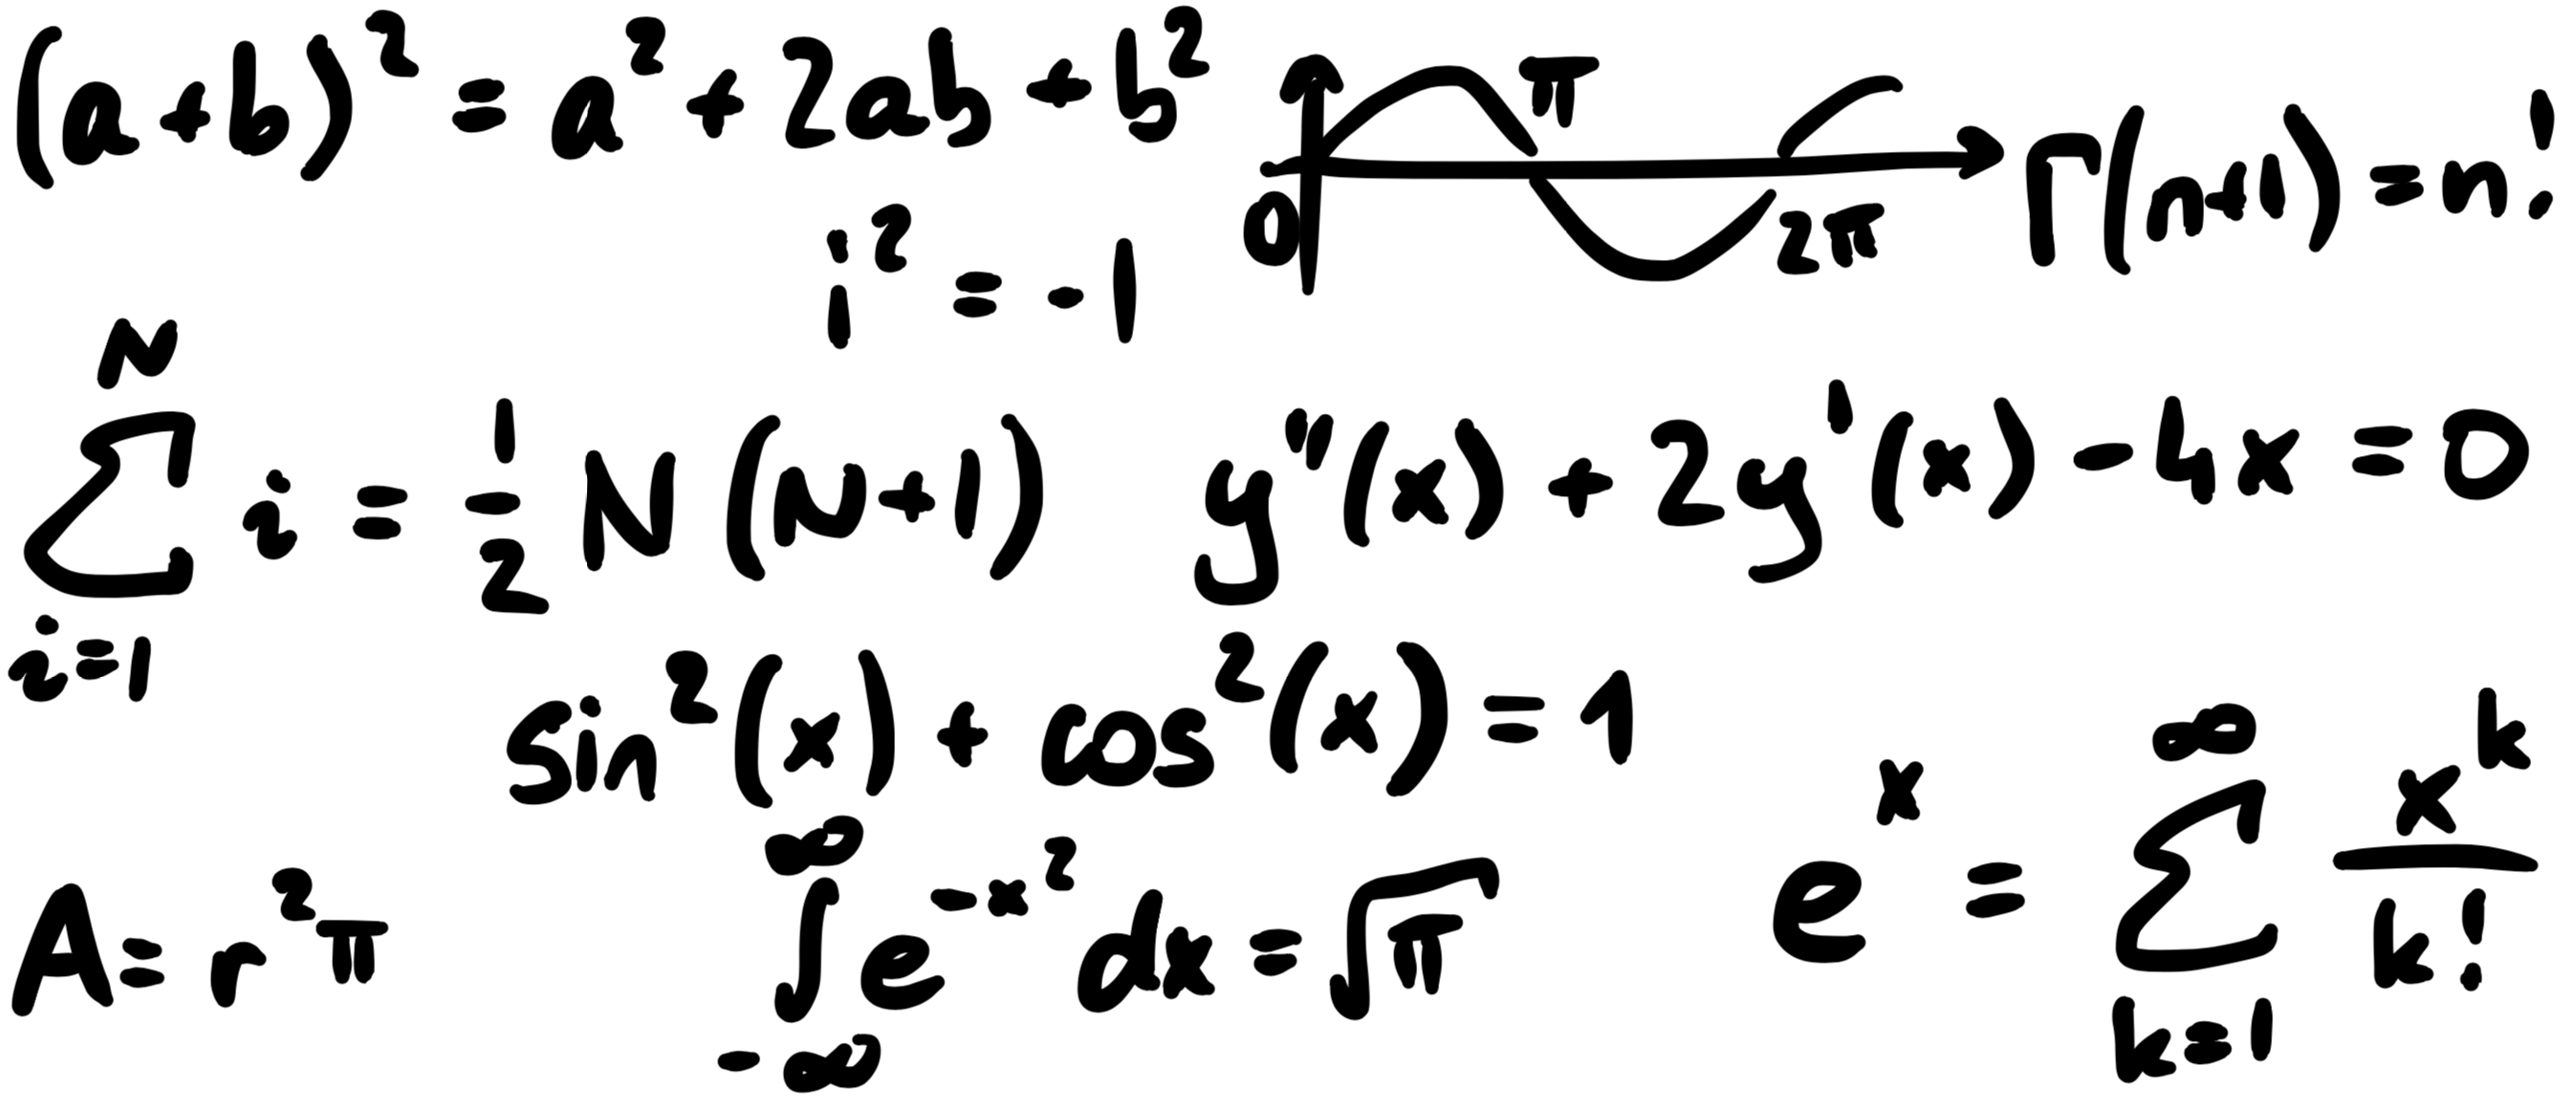 (a+b)² = a² + 2ab + b²
π
0
2π
Γ(n+1) = n!
i² = -1
N
∑ i = 1/2 N(N+1)
i=1
y"(x) + 2y'(x) - 4x = 0
sin²(x) + cos²(x) = 1
A = r²π
∞
∫ e^(-x²) dx = √π
-∞
∞
eˣ = ∑ xᵏ/k!
k=1